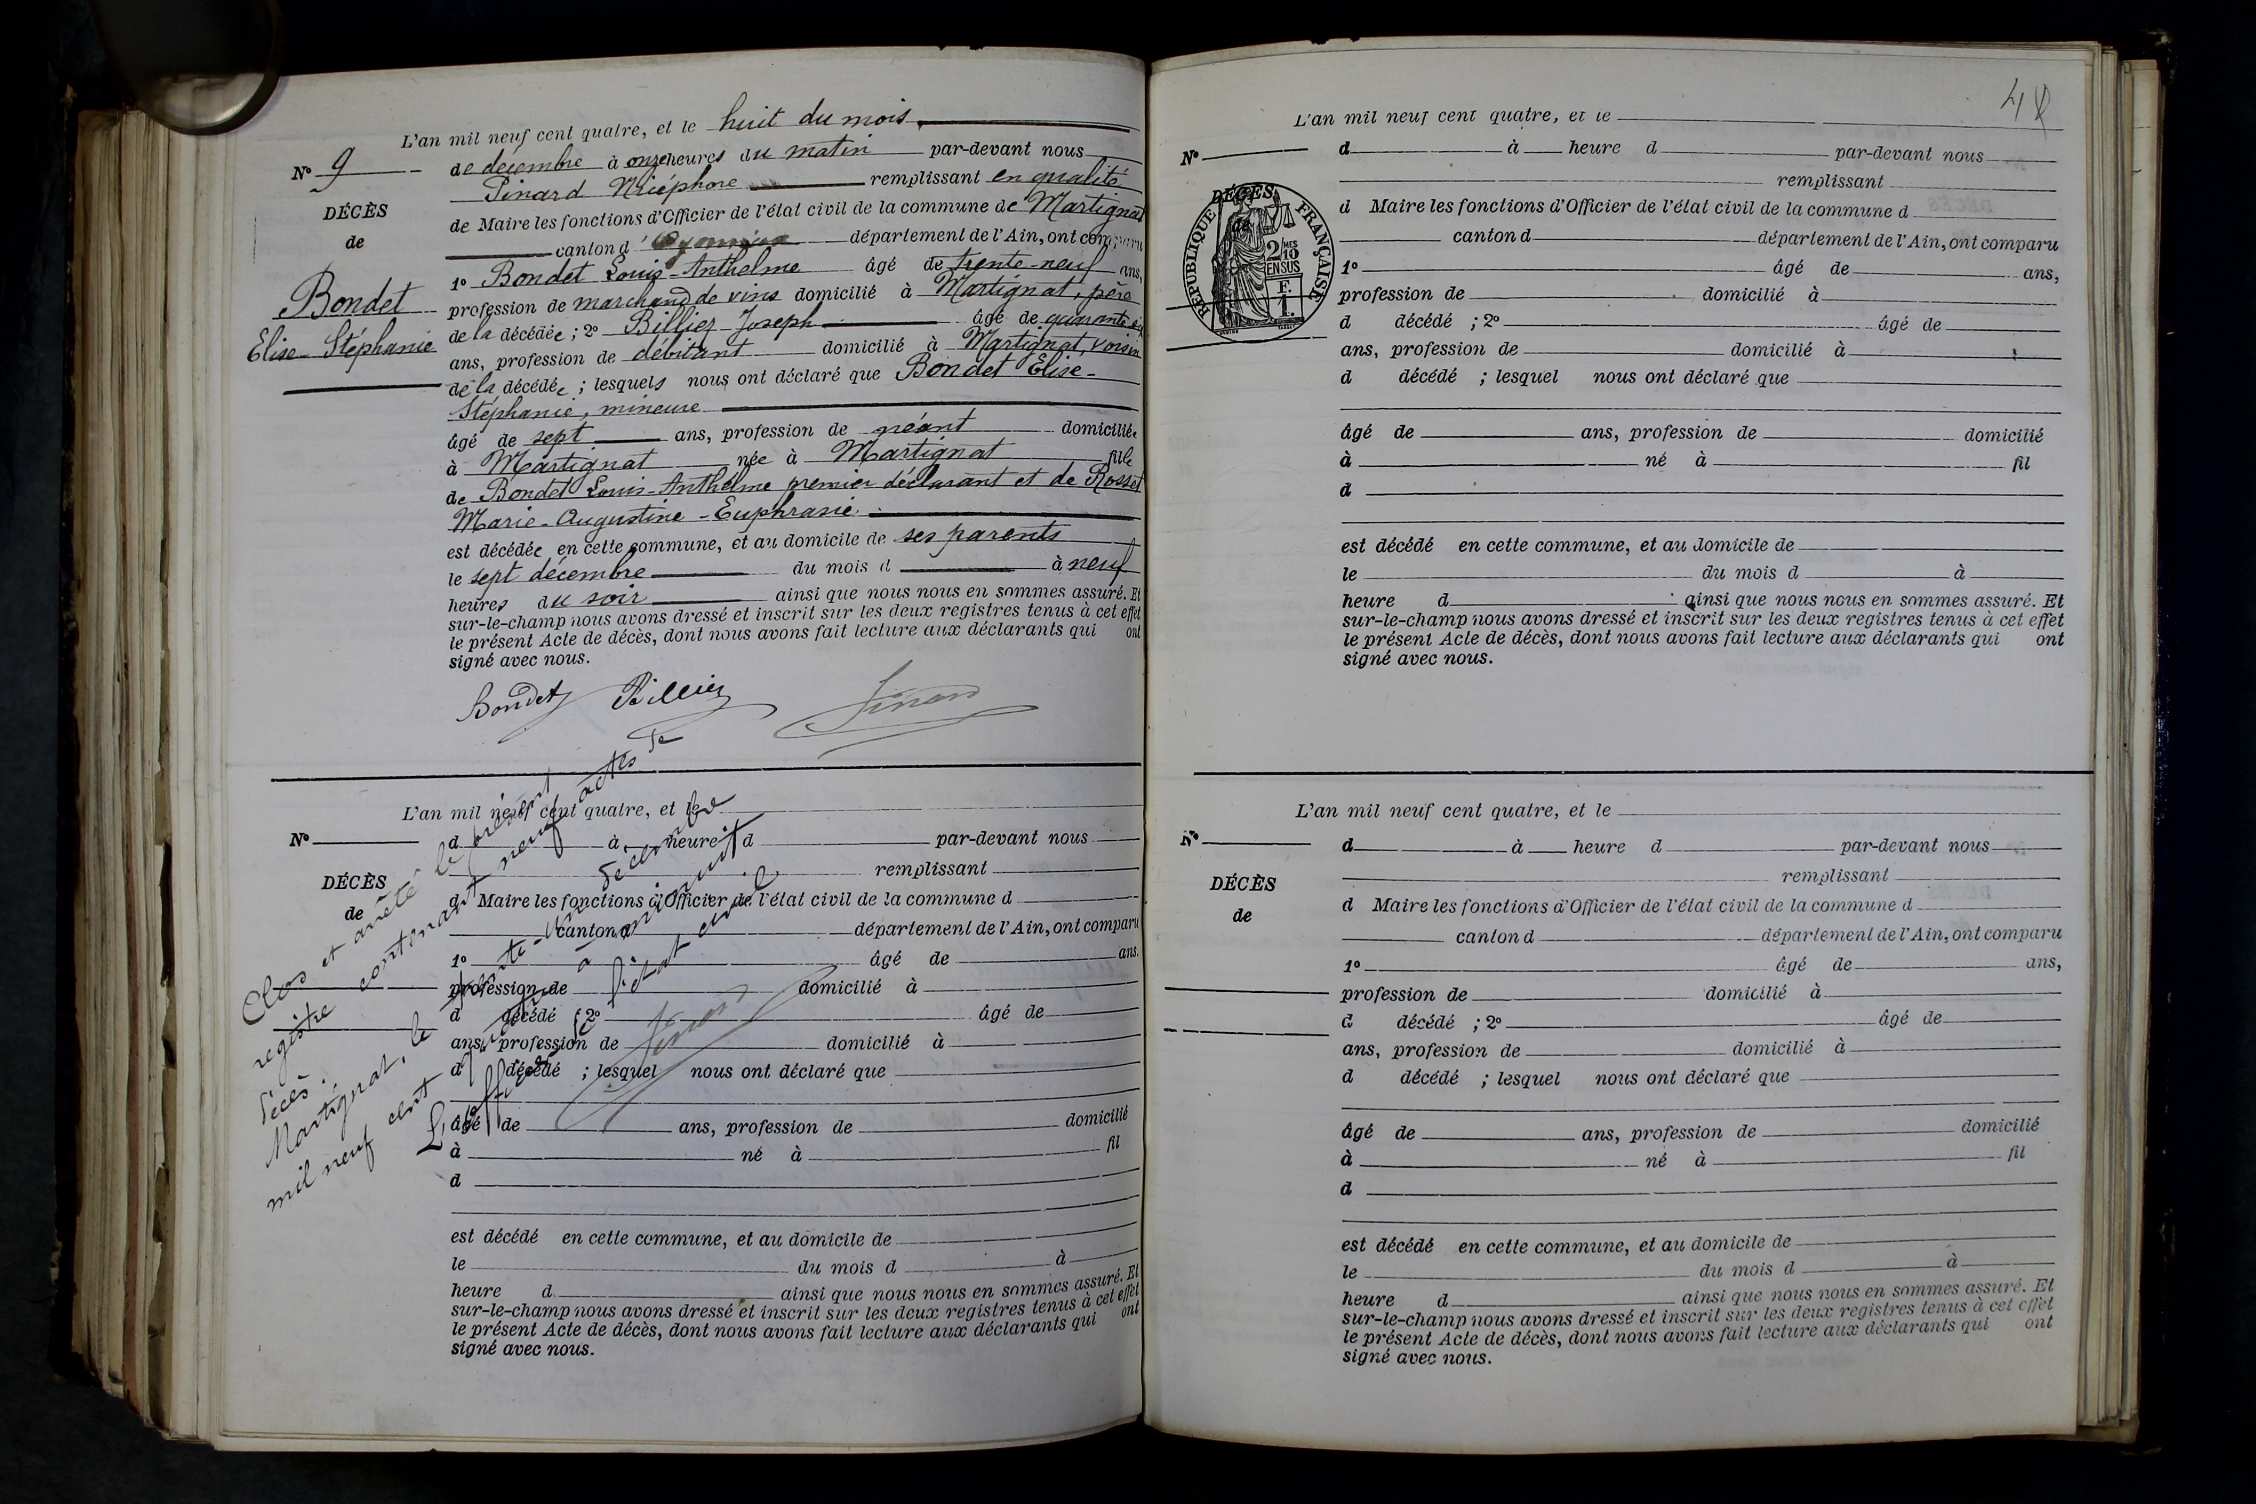 L'an mil neuf cent quatre, et le huit du mois
N° 9
de décembre à onze heures du matin par-devant nous
Pinard Nicéphore remplissant en qualité
DÉCÈS
de Maire les fonctions d'Officier de l'état civil de la commune de Martignat
de
canton d'Oyonnax département de l'Ain, ont comparu
1° Bondet Louis-Anthelme âgé de trente-neuf ans,
Bondet
profession de marchand de vins domicilié à Martignat, père
de la décédée ; 2° Billiez Joseph âgé de quarante six
Elise-Stéphanie
ans, profession de débitant domicilié à Martignat, voisin
de la décédée ; lesquels nous ont déclaré que Bondet Elise-
Stéphanie, mineure
âgé de sept ans, profession de néant domiciliée
à Martignat née à Martignat fille
de Bondet Louis-Anthelme premier déclarant et de Rosset
Marie-Augustine-Euphrasie.
est décédée en cette commune, et au domicile de ses parents
le sept décembre du mois d à neuf
heures du soir ainsi que nous nous en sommes assuré. Et
sur-le-champ nous avons dressé et inscrit sur les deux registres tenus à cet effet
le présent Acte de décès, dont nous avons fait lecture aux déclarants qui ont
signé avec nous.
Bondet Billiez Pinard
L'an mil neuf cent quatre, et le
N°
d à heure d par-devant nous
remplissant
DÉCÈS
d Maire les fonctions d'Officier de l'état civil de la commune d
de
canton d département de l'Ain, ont comparu
1° âgé de ans.
profession de domicilié à
d décédé ; 2° âgé de
ans, profession de domicilié à
d décédé ; lesquel nous ont déclaré que
âgé de ans, profession de domicilié
à né à fil
d
est décédé en cette commune, et au domicile de
le du mois d à
heure d ainsi que nous nous en sommes assuré. Et
sur-le-champ nous avons dressé et inscrit sur les deux registres tenus à cet effet
le présent Acte de décès, dont nous avons fait lecture aux déclarants qui ont
signé avec nous.
Clos et arrêté le présent
registre contenant neuf actes de
décès.
Martignat, le trente-un décembre
mil neuf cent quatre à minuit
L'officier de l'état civil
Pinard
48
L'an mil neuf cent quatre, et le
N°
d à heure d par-devant nous
remplissant
DÉCÈS
de
RÉPUBLIQUE FRANÇAISE
2/10 MES
EN SUS
F.
1.
d Maire les fonctions d'Officier de l'état civil de la commune d
canton d département de l'Ain, ont comparu
1° âgé de ans,
profession de domicilié à
d décédé ; 2° âgé de
ans, profession de domicilié à
d décédé ; lesquel nous ont déclaré que
âgé de ans, profession de domicilié
à né à fil
d
est décédé en cette commune, et au domicile de
le du mois d à
heure d ainsi que nous nous en sommes assuré. Et
sur-le-champ nous avons dressé et inscrit sur les deux registres tenus à cet effet
le présent Acte de décès, dont nous avons fait lecture aux déclarants qui ont
signé avec nous.
L'an mil neuf cent quatre, et le
N°
d à heure d par-devant nous
remplissant
DÉCÈS
d Maire les fonctions d'Officier de l'état civil de la commune d
de
canton d département de l'Ain, ont comparu
1° âgé de ans,
profession de domicilié à
d décédé ; 2° âgé de
ans, profession de domicilié à
d décédé ; lesquel nous ont déclaré que
âgé de ans, profession de domicilié
à né à fil
d
est décédé en cette commune, et au domicile de
le du mois d à
heure d ainsi que nous nous en sommes assuré. Et
sur-le-champ nous avons dressé et inscrit sur les deux registres tenus à cet effet
le présent Acte de décès, dont nous avons fait lecture aux déclarants qui ont
signé avec nous.